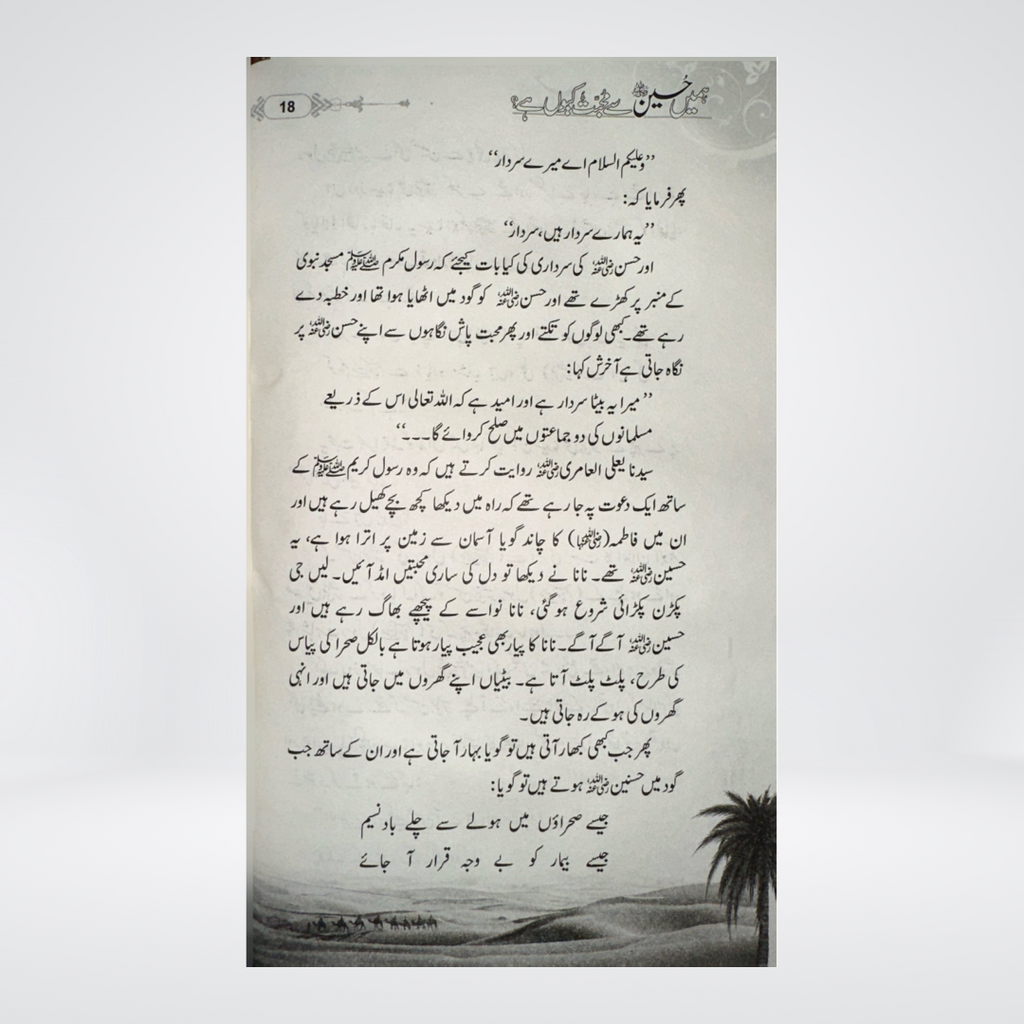 ہمیں حُسین رضی اللہ عنہ سے محبّت کیوں ہے؟
18
’’وعلیکم السلام اے میرے سردار‘‘
پھر فرمایا کہ:
’’یہ ہمارے سردار ہیں، سردار‘‘
اور حسن رضی اللہ عنہ کی سرداری کی کیا بات کیجئے کہ رسول مکرم ﷺ مسجد نبوی
کے منبر پر کھڑے تھے اور حسن رضی اللہ عنہ کو گود میں اٹھایا ہوا تھا اور خطبہ دے
رہے تھے۔ کبھی لوگوں کو تکتے اور پھر محبت پاش نگاہوں سے اپنے حسن رضی اللہ عنہ پر
نگاہ جاتی ہے آخرش کہا:
’’ میرا یہ بیٹا سردار ہے اور امید ہے کہ اللہ تعالی اس کے ذریعے
مسلمانوں کی دو جماعتوں میں صلح کروائے گا۔۔۔‘‘
سیدنا یعلی العامری رضی اللہ عنہ روایت کرتے ہیں کہ وہ رسول کریم ﷺ کے
ساتھ ایک دعوت پہ جا رہے تھے کہ راہ میں دیکھا کچھ بچے کھیل رہے ہیں اور
ان میں فاطمہ (رضی اللہ عنہا) کا چاند گویا آسمان سے زمین پر اترا ہوا ہے، یہ
حسین رضی اللہ عنہ تھے۔ نانا نے دیکھا تو دل کی ساری محبتیں امڈ آئیں۔ لیں جی
پکڑن پکڑائی شروع ہو گئی، نانا نواسے کے پیچھے بھاگ رہے ہیں اور
حسین رضی اللہ عنہ آگے آگے۔ نانا کا پیار بھی عجیب پیار ہوتا ہے بالکل صحرا کی پیاس
کی طرح، پلٹ پلٹ آتا ہے۔ بیٹیاں اپنے گھروں میں جاتی ہیں اور انہی
گھروں کی ہو کے رہ جاتی ہیں۔
پھر جب کبھی کبھار آتی ہیں تو گویا بہار آ جاتی ہے اور ان کے ساتھ جب
گود میں حسنین رضی اللہ عنہ ہوتے ہیں تو گویا:
جیسے صحراؤں میں ہولے سے چلے باد نسیم
جیسے بیمار کو بے وجہ قرار آ جائے